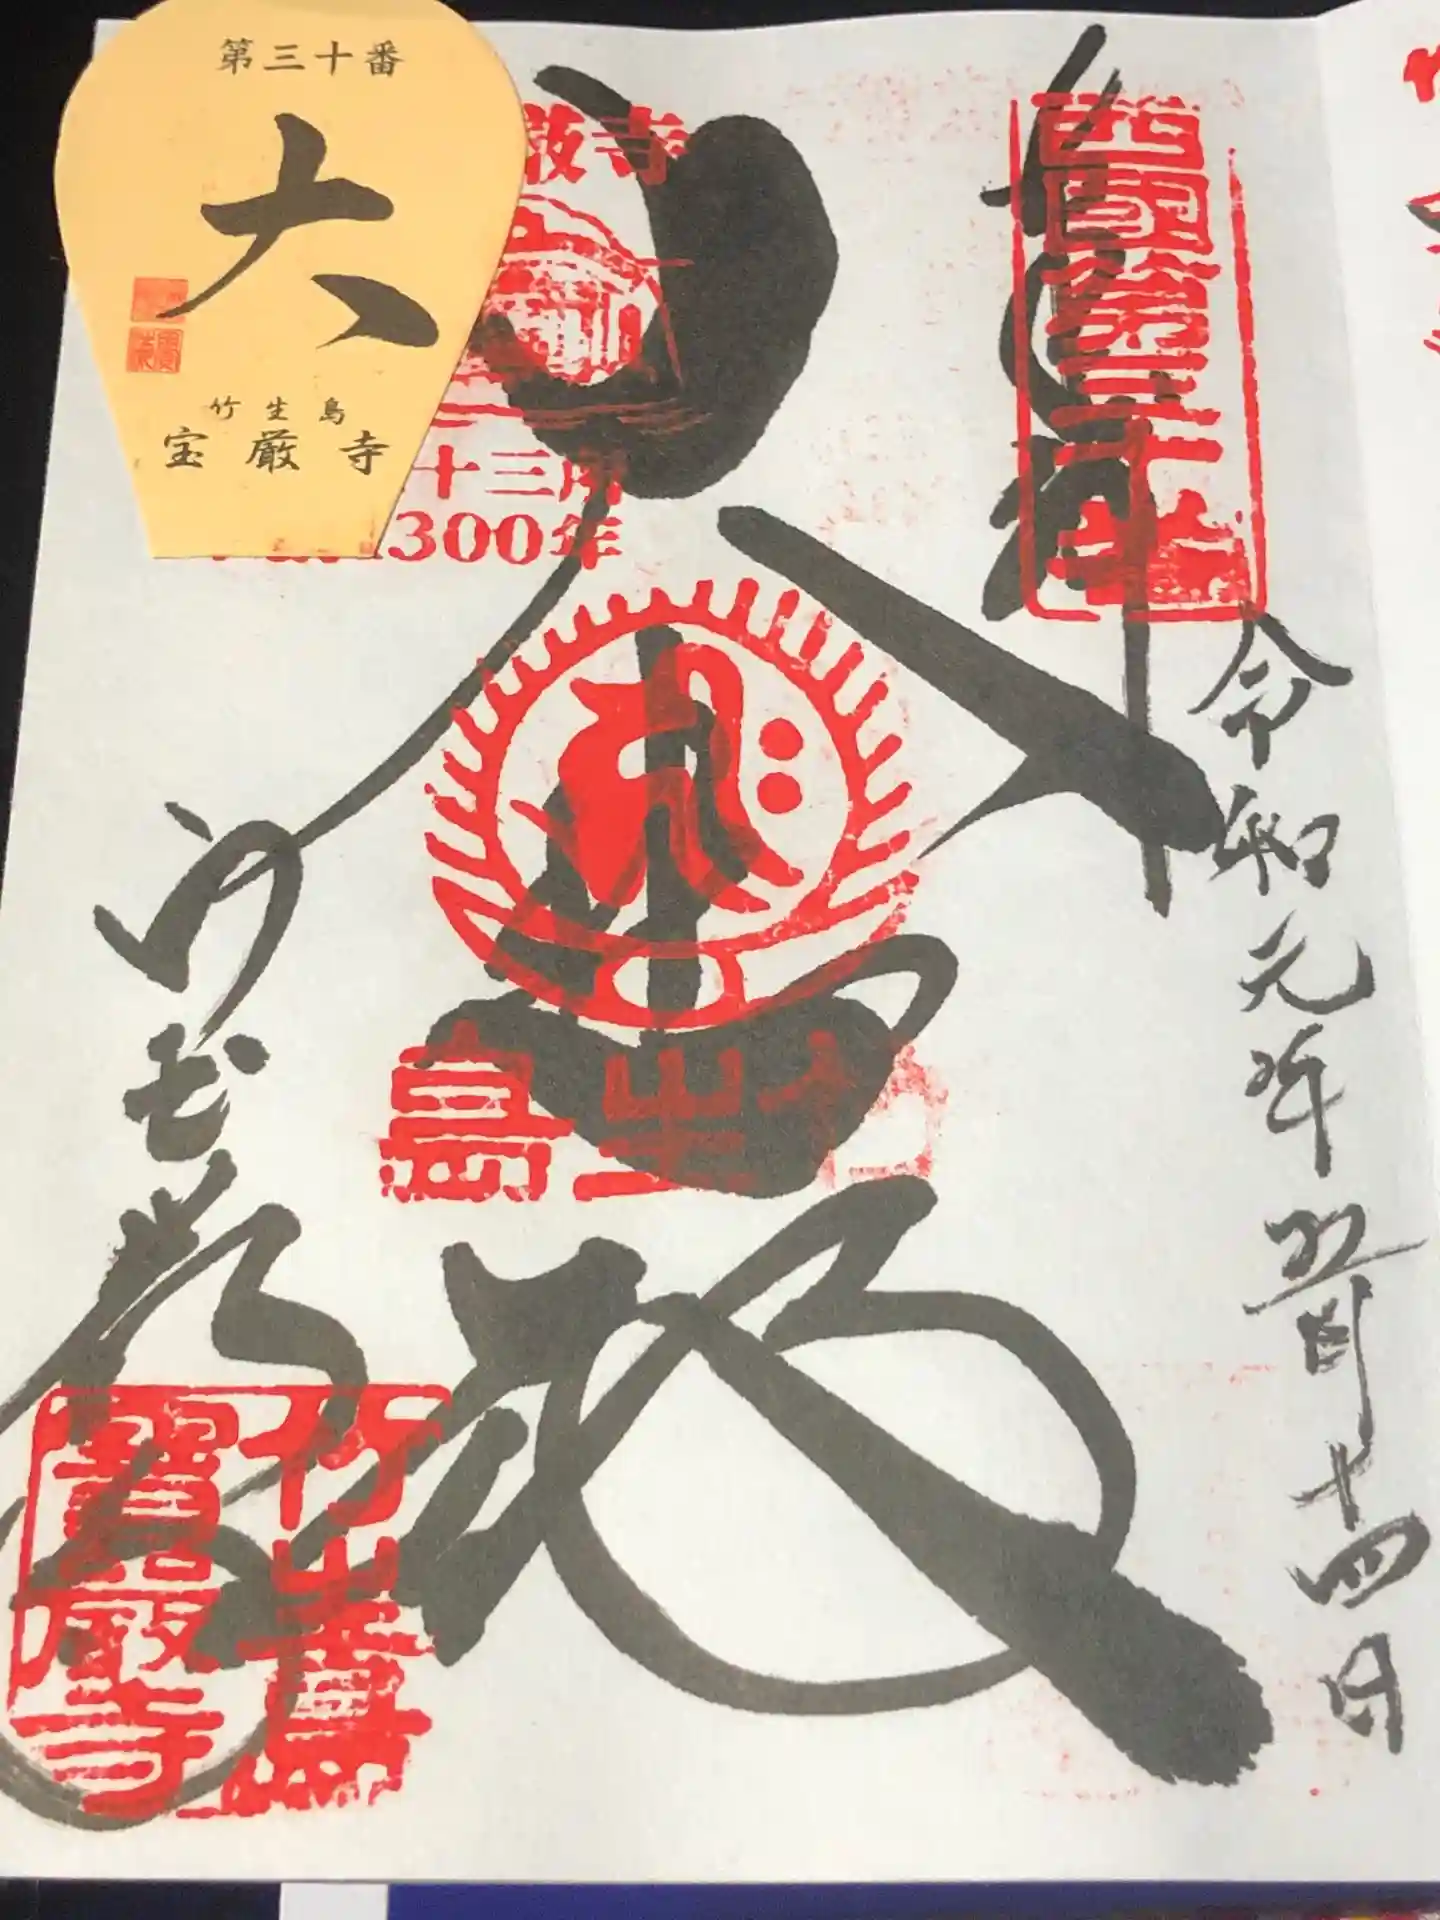 第三十番
大
竹生島
宝厳寺
厳寺
十三所
1300年
西國第三十番
奉拝
令和元年五月十四日
大悲殿
竹生島
竹生島
寶厳寺